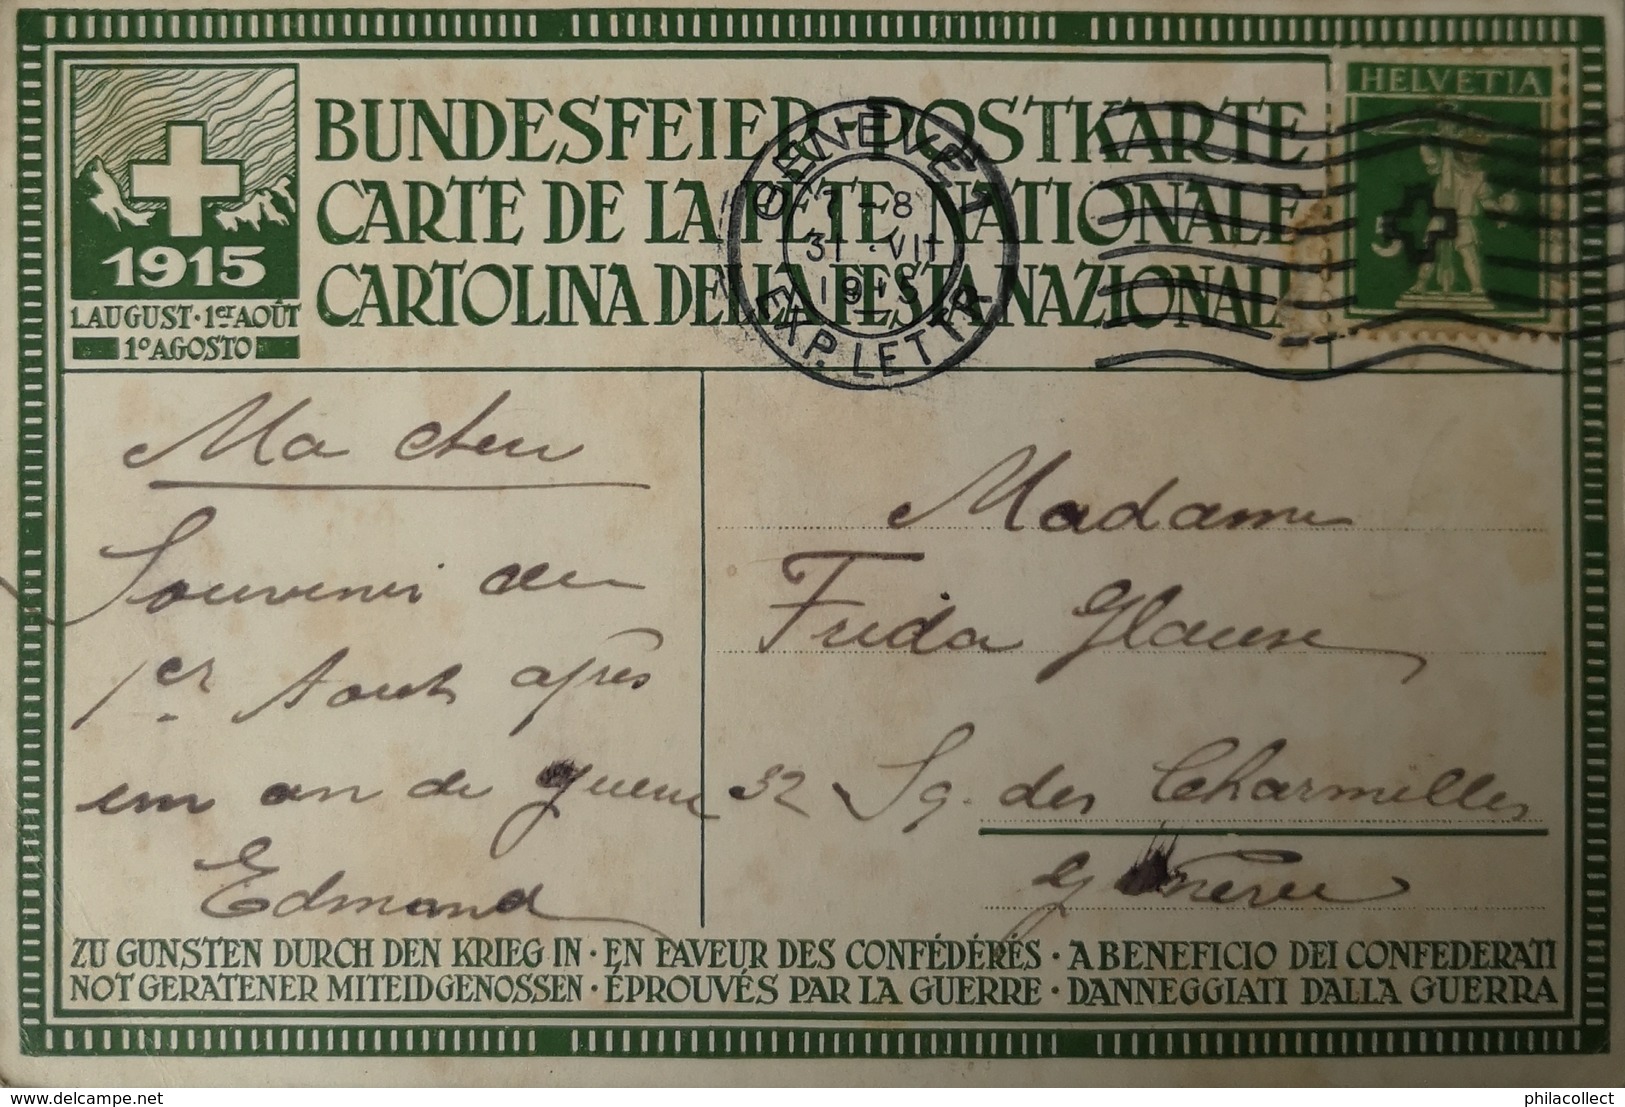 BUNDESFEIER-POSTKARTE
CARTE DE LA FÊTE NATIONALE
CARTOLINA DELLA FESTA NAZIONALE
1915
1.AUGUST·1er AOÛT
1º AGOSTO
GENÈVE 1
7-8
31.VII
1915
EXP. LETTR.
HELVETIA
5
Ma
Souvenir du
1er Août après
un an de guerre
Edmand
Madame
Frida
32 Sq. des Charmilles
Genève
ZU GUNSTEN DURCH DEN KRIEG IN · EN FAVEUR DES CONFÉDÉRÉS · A BENEFICIO DEI CONFEDERATI
NOT GERATENER MITEIDGENOSSEN · ÉPROUVÉS PAR LA GUERRE · DANNEGGIATI DALLA GUERRA
philacollect